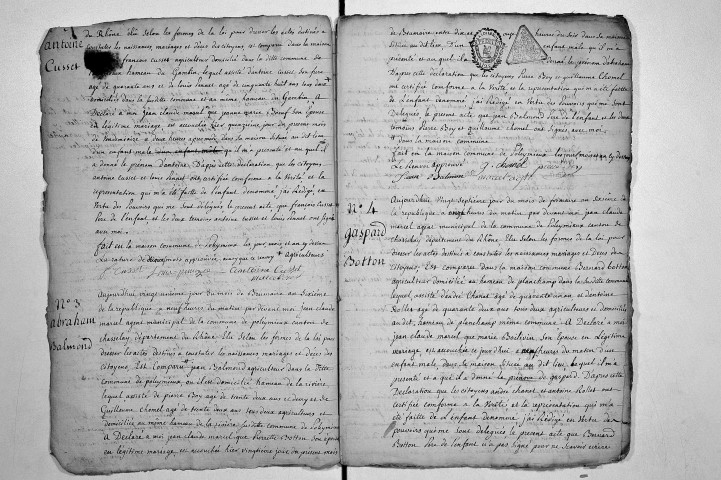 antoine
Cusset
du Rhône Elû Selon les formes de la loi pour dresser les actes destinés à
constater les naissances mariages et décés des citoyens est comparu dans la maison
francois cusset agriculteur domicilié dans la ditte commune de
hameau du Gambin, lequel assisté d'antoine Cusset son frere
agé de quarante ans et de louis Penet agé de cinquante huit ans tous deux
domiciliés dans la susditte commune et au même hameau du Gambin, à
Déclaré à moi jean claude marcel que jeanne marie son Epouse
en légitime mariage, est accouchée hier quinzieme jour du présent mois
à deux heures après midi dans la maison au dit lieu
d'un enfant mâle qu'il m'a présenté et au quel il
a donné le prénom d'antoine. D'après cette déclaration que les citoyens
antoine cusset et louis Penet ont certifiée conforme à la vérité et la
représentation qui m'a été faitte de l'enfant dénommé, j'ai rédigé, en
vertu des pouvoirs qui me sont délégués le présent acte que françois Cusset
Pere de l'enfant, et les deux temoins antoine cusset et louis Penet ont signé
avec moi
fait en la maison commune de Poleymieux les jour mois et an cy dessus
agriculteurs
f. Cusset antoine Cusset
marcel
N° 3
abraham
Balmond
Aujourd'hui vingt unième jour du mois de Brumaire an Sixième
de la république à neuf heures du matin par devant moi jean claude
marcel agent municipal de la commune de polleymieux canton de
chasselay, département du Rhône Elû Selon les formes de la loi pour
dresser les actes destinés à constater les naissances mariages et décés des
citoyens Est Comparu jean Balmond agriculteur dans la ditte
commune de polleymieux où il est domicilié hameau de la riviere,
lequel assisté de pierre Boy agé de trente deux ans et de
Guillaume Chonel agé de trente deux ans tous deux agriculteurs et
domiciliés au même hameau de la riviere susditte commune de Polleymieux
a Déclaré à moi jean claude marcel que Pierrette Botton son épouse
en légitime mariage, est accouchée hier vingtieme jour du présent mois
de Brumaire entre dix et heures du soir dans sa maison
Située au dit lieu, D'un enfant mâle qu'il m'a
présenté et au quel il a donné le prénom d'abraham
D'après cette déclaration que les citoyens Pierre Boy et guillaume Chonel
ont certifié conforme à la Vérité et la représentation qui m'a été faitte
de L'enfant dénommé j'ai Rédigé en vertu des Pouvoirs qui me sont
Délégués, le présent acte, que jean Balmond Père de l'enfant et les deux
temoins Pierre Boy et guillaume Chonel ont signés avec moi
dans la maison commune
fait en la maison commune de Polleymieux, les jour mois et an cy dessus
jean Balmond marcel agt
N° 4
gaspard
Botton
Aujourd'hui Vingt Septième jour du mois de frimaire an Sixieme de
la république à onze heures du matin par devant moi jean claude
marcel agent municipal de la commune de Polleymieux canton de
chasselay département du Rhône Elû Selon les formes de la loi pour
dresser les actes destinés à constater les naissances mariages et Décés des
citoyens, Est comparu dans la maison commune Bernard botton
agriculteur domicilié au hameau de planchamp dans la susditte commune
lequel, assisté d'andré Chanet agé de quarante un an et d'antoine
Rollet agé de quarante deux ans tous deux agriculteurs et domiciliés
au dit hameau de planchamp même commune. à Déclaré à moi
jean claude marcel que marie Son Epouse en Légitime
mariage est accouchée ce jour d'hui à heures du matin d'un
enfant mâle dans la maison située au dit lieu, lequel il m'a
présenté et à qui il a donné le prénom de gaspard. D'après cette
Déclaration que les citoyens andré chanet et antoine Rollet ont
certifiée conforme à la Vérité et la représentation qui m'a
été faitte de L'enfant dénommé, j'ai Rédigé en Vertu des
pouvoirs qui me sont délégués le présent acte que Bernard
Botton Père de l'enfant n'a pas signé pour ne scavoir écrire